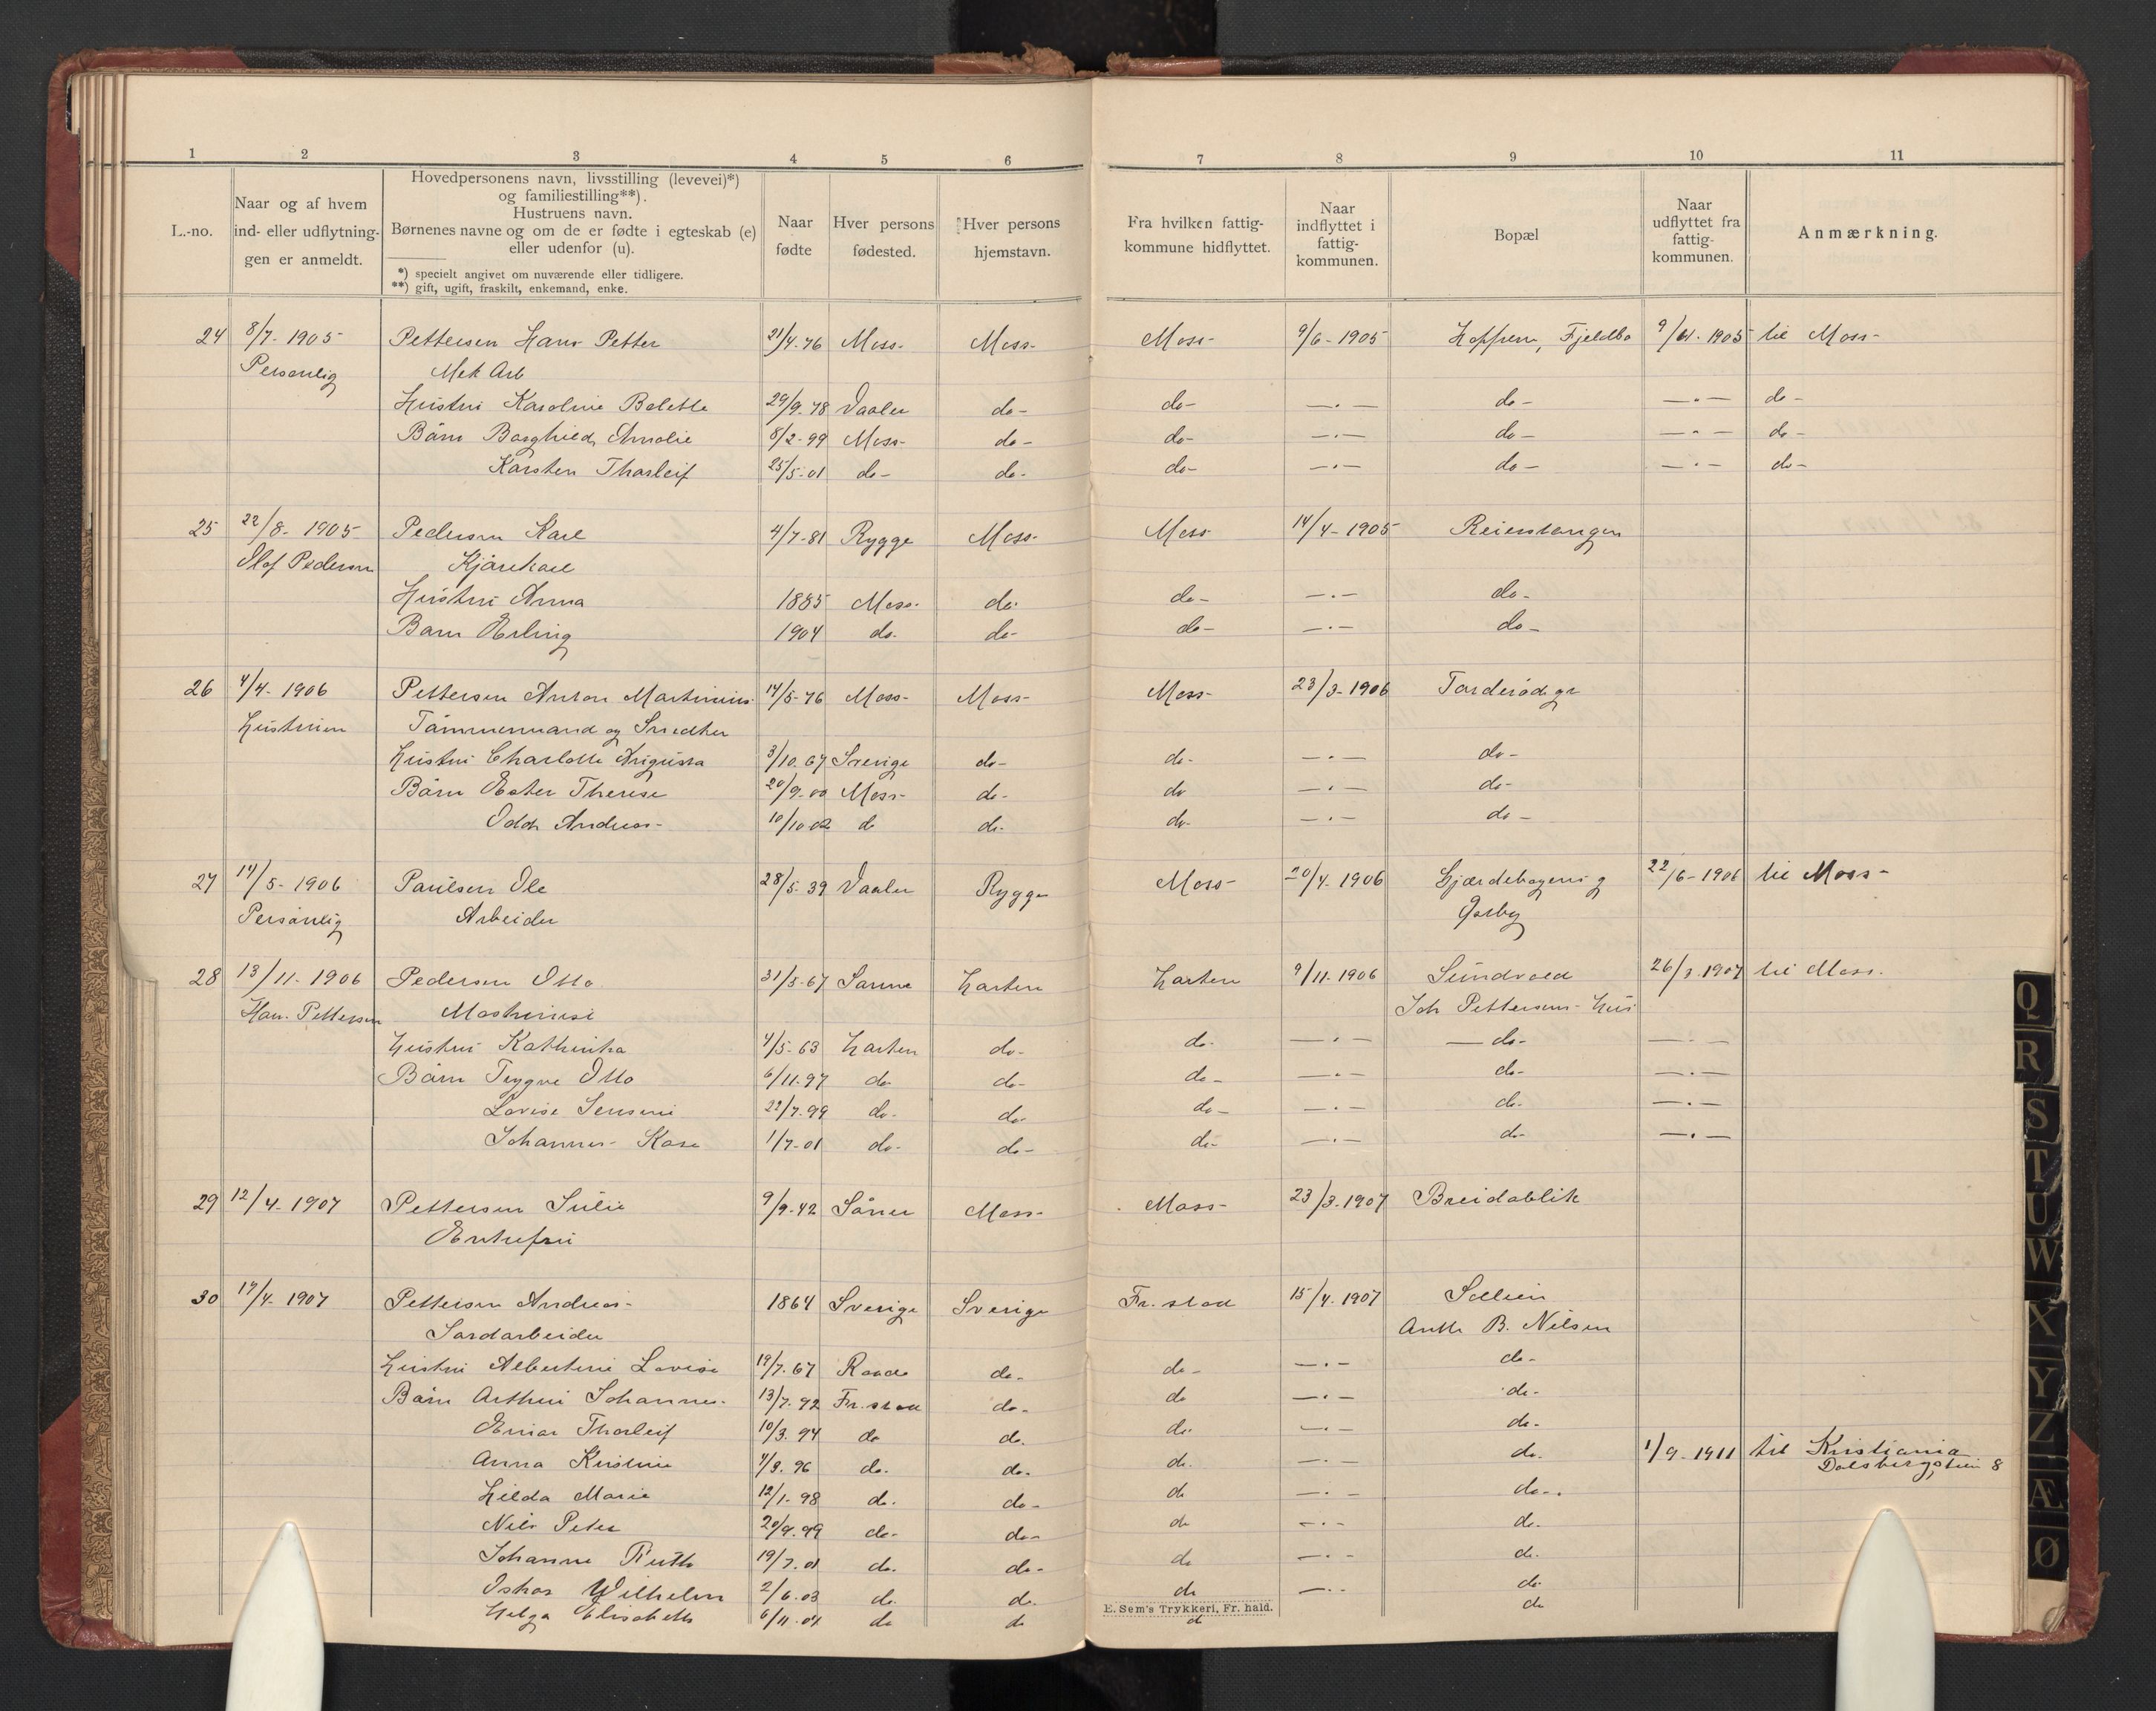 1 2 3 4 5 6 7 8 9 10 11
L.-no.
Naar og af hvem
ind- eller udflytnin-
gen er anmeldt.
Hovedpersonens navn, livsstilling (levevei)*)
og familiestilling**).
Hustruens navn.
Børnenes navne og om de er fødte i egteskab (e)
eller udenfor (u).
*) specielt angivet om nuværende eller tidligere.
**) gift, ugift, fraskilt, enkemand, enke.
Naar
fødte
Hver persons
fødested.
Hver persons
hjemstavn.
Fra hvilken fattig-
kommune hidflyttet.
Naar
indflyttet i
fattig-
kommunen.
Bopæl
Naar
udflyttet fra
fattig-
kommunen.
Anmærkning.
24 8/7-1905 Pettersen Hans Petter 21/4-76 Moss- Moss- Moss- 9/6-1905 Hoppern, Fjeldbo 9/11-1905 til Moss-
Personlig Mek Arb
Hustru Karoline Bolette 29/9-78 Vaaler do- do- —·— do- —·— do-
Børn Borghild Amalie 8/2-99 Moss- do- do- —·— do- —·— do-
Karsten Thorleif 25/5-01 do- do- do- —·— do- —·— do-
25 22/8-1905 Pedersen Karl 4/7-81 Rygge Moss- Moss 14/4-1905 Reierstangen
Olof Pedersen Kjørekarl
Hustru Anna 1885 Moss- do- do- —·— do-
Barn Erling 1904 do- do- do- —·— do-
26 4/4-1906 Pettersen Anton Martinius 14/5-76 Moss- Moss- Moss- 23/3-1906 Torderød gr
Hustruen Tømmermand og Snedker
Hustru Charlotte Augusta 3/10.67 Sverige do- do- —·— do-
Børn Ester Therese 20/9-00 Moss- do- do —·— do-
Odd Andreas- 10/10 02 do do- do- —·— do-
27 14/5-1906 Paulsen Ole 28/5-39 Vaaler Rygge Moss- 20/4-1906 Gjærdehagens g 22/6-1906 til Moss-
Personlig Arbeider Ørby
28 13/11-1906 Pedersen Otto 31/5-67 Sanne Horten Horten 9/11-1906 Sundvold 26/3-1907 til Moss.
Han. Pettersen Maskinist Joh Pettersens Hus
Hustru Kathinka 4/5-63 Horten do- do- —·— —do- —·—
Børn Trygve Otto 6/11-97 do do- do- —·— do- —·—
Lovise Jensine 22/7-99 do- do- do- —·— do- —·—
Johannes Kaare 1/7-01 do- do- do- —·— do- —·—
29 12/4-1907 Pettersen Julie 9/9-42 Såner Moss- Moss- 23/3-1907 Breidablik
Enkefru
30 17/4-1907 Pettersen Andreas- 1864 Sverige Sverige Fr.stad 15/4-1907 Sollien
Jordarbeider Anth B. Nilsen
Hustru Albertine Lovise 19/7.67 Raade do- do- —·— do-
Børn Arthur Johannes- 13/7.92 Fr.stad do- do —·— do-
Einar Thorleif 10/3.94 do do. do. —·— do-
Anna Kristine 4/8.96 do. do. do. —·— do. 1/9-1911 til Kristiania
Dalsbergstien 8
Hilda Marie 12/1-98 do. do- do —·— do-.
Nils Peter 20/9.99 do- do- do —·— do.
Johanne Ruth 19/7.01 do. do- do —·— do.
Oskar Wilhelm 2/6.03 do. do. do —·— do-
Helga Elisabeth 6/11.04 do do do do
E. Sem's Trykkeri, Fr. hald.
Q
R
S
T
U
W
X
Y
Z
Æ
Ø